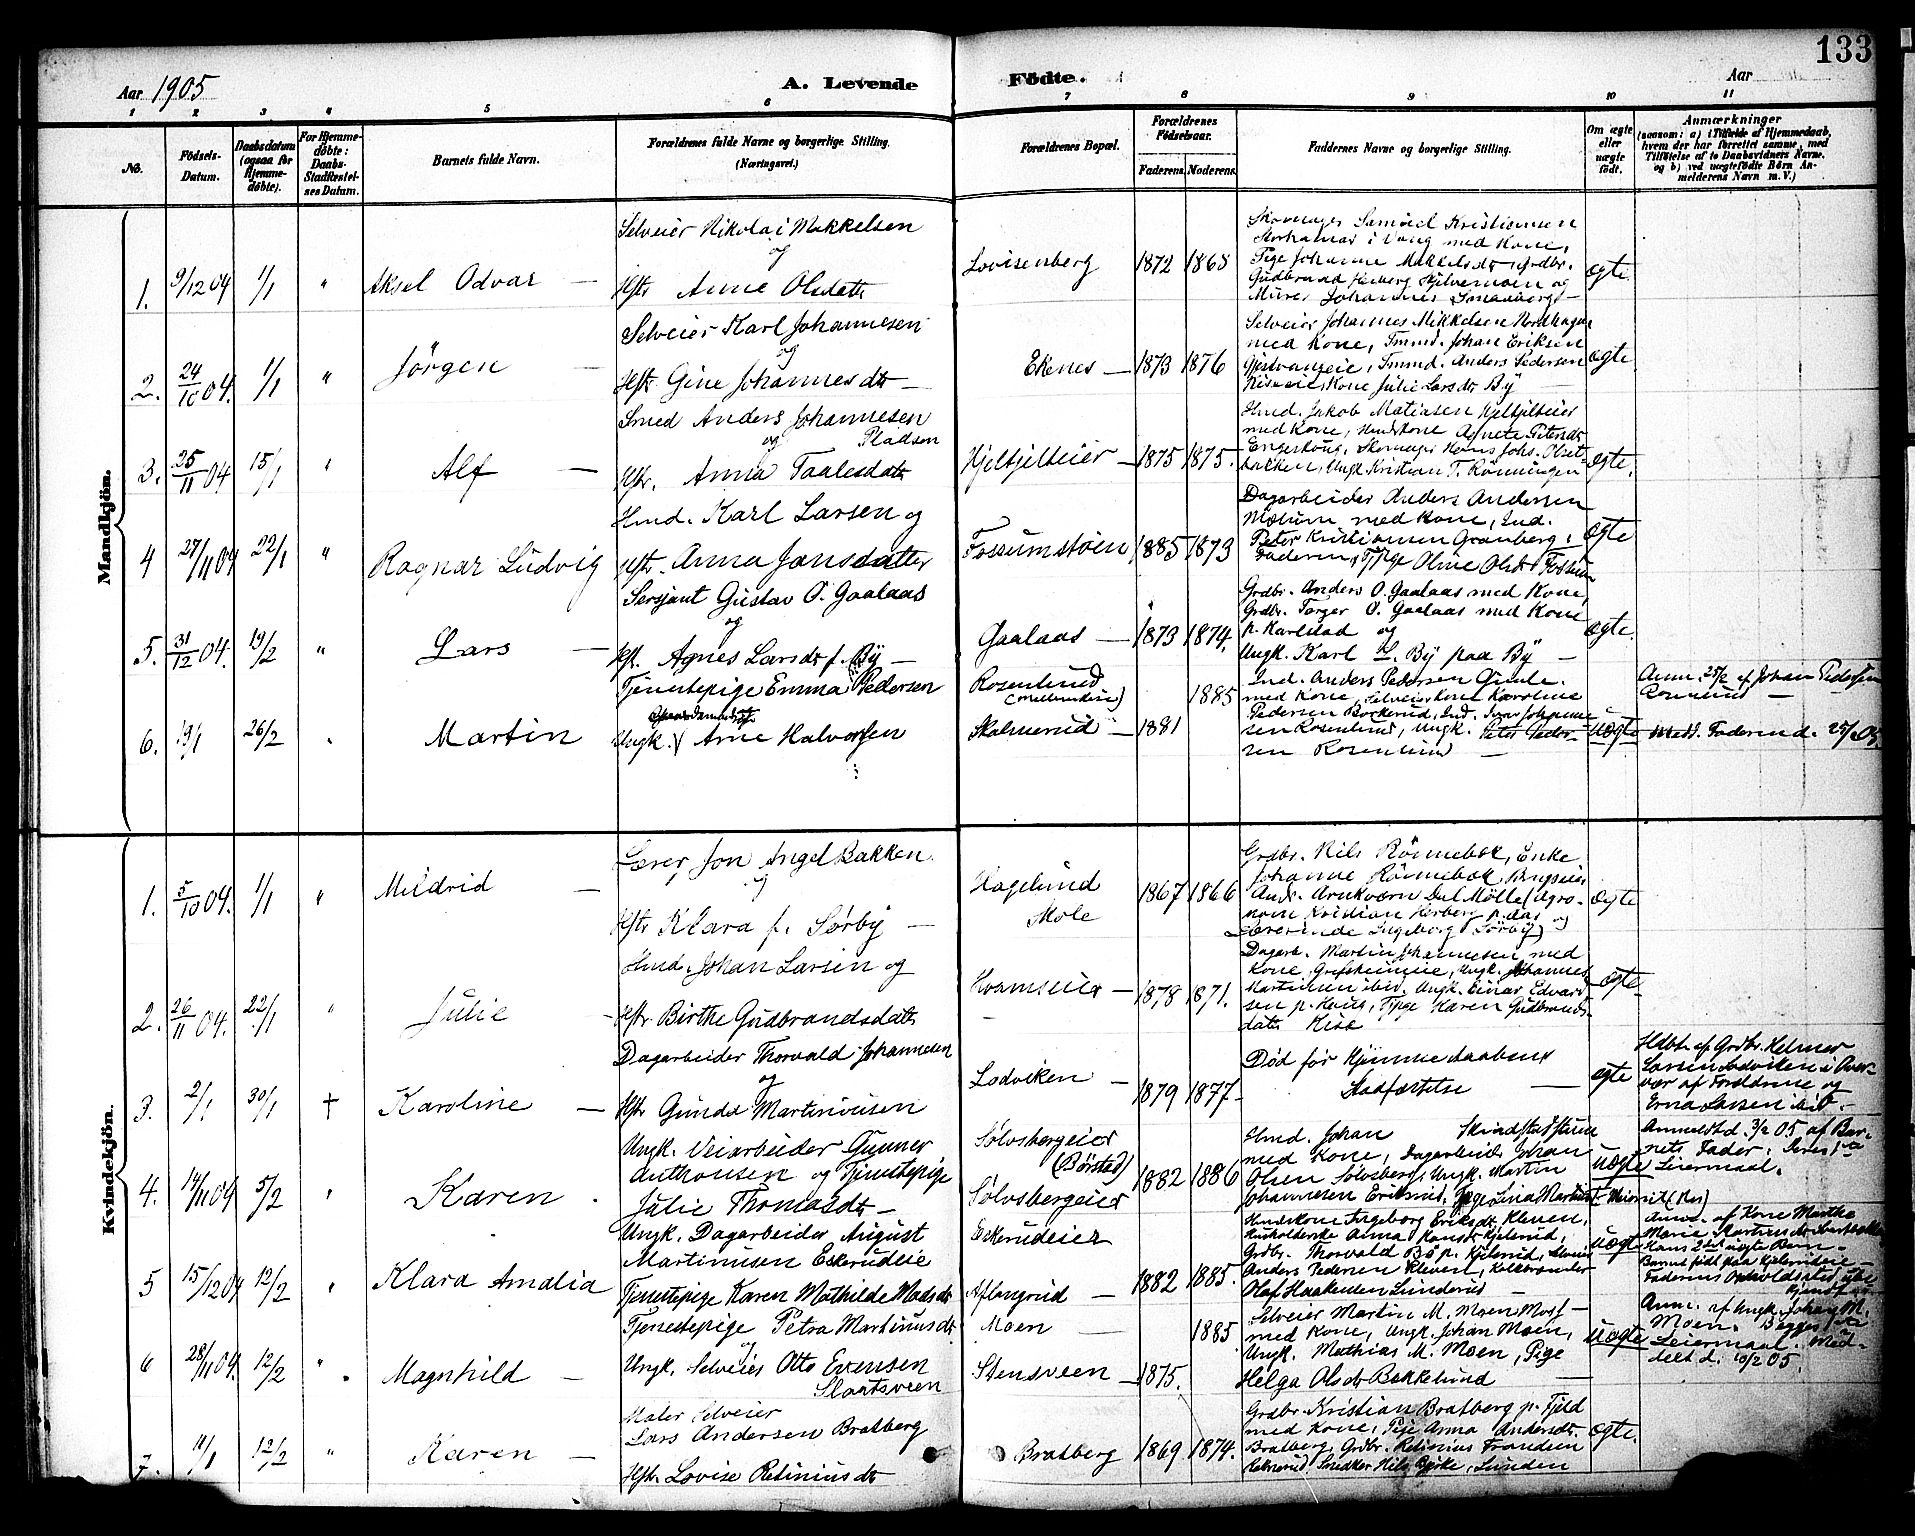 133
Aar 1905
A. Levende Fødte.
Aar
1 2 3 4 5 6 7 8 9 10 11
No.
Fødsels-
Datum.
Daabsdatum
(ogsaa for
Hjemme-
døbte).
For Hjemme-
døbte:
Daabs-
Stadfæstel-
ses Datum.
Barnets fulde Navn.
Forældrenes fulde Navne og borgerlige Stilling.
(Næringsvei.)
Forældrenes Bopæl.
Forældrenes
Fødselsaar.
Faderens. Moderens.
Faddernes Navne og borgerlige Stilling.
Om ægte
eller
uægte
født.
Anmærkninger
(saasom: a) i Tilfælde af Hjemmedaab,
hvem der har forrettet samme, med
Tilføielse af to Daabsvidners Navne,
og b) ved uægtefødte Børn An-
melderens Navn m. V.)
Mandkjön.
1. 9/12 04 1/1 " Aksel Odvar —
Selveier Nikolai Mikkelsen
og
Hstr Anne Olsdatr
Lovisenberg 1872 1868
Samuel Kristiansen
Storhamar i Vang med Kone,
Pige Johanne Mikkelsdr, Grdbr.
Gudbrand
Murer Johannes Smedberg —
ægte.
2. 24/10 04. 1/1 " Jörgen —
Selveier Karl Johannesen
og
Hstr. Gine Johannesdr —
Ekenes — 1873 1876
Selveier Johannes Mikkelsen Nordhagen
med Kone, Tmmd. Johan Eriksen
Tmmd. Anders Pedersen
Kone Julie Larsdr By —
ægte
3. 25/11 04 15/1 " Alf —
Smed Anders Johannesen
og Pladsen
Hstr. Anna Taalesdatr
Hjeltjelteier — 1875 1875.
Hmd. Jakob Matiasen Hjeltjelteier
med Kone, Huuskone Agnete Petersdr
Engeskoug, Skomager Hans Johs. Olset-
bakken, Ungk. Kristian T. Rönningen
ægte.
4 27/11 04 22/1 " Ragnar Ludvig
Hmd. Karl Larsen og
Hstr. Anna Jansdatter
Fossumstöen 1885 1873
Dagarbeider Anders Andersen
Mælum med Kone, Ind.
Peter Kristiansen Granberg,
Faderen, Tjpge Oline Olsdr Fossum
ægte
5. 31/12 04. 19/2 " Lars —
Sersjant Gustav O. Gaalaas
og
Hst. Agnes Larsdr f. By —
Gaalaas — 1873 1874.
Grdbr. Anders O. Gaalaas med Kone,
Grdbr. Torger O. Gaalaas med Kone
p. Karlstad og
Ungk. Karl L. By paa By —
ægte.
6. 19/1 26/2 " Martin
Tjenestepige Emma Pedersen
Ungk. Arne Halvorsen
Rosenlund
1885
Skolmerud — 1881
Ind. Anders Pedersen Gimle
med Kone, Selveier Kone Karoline
Pedersen Bockerud, Ind. Ivar Johanne-
sen Rosenlund, Ungk. Peter Peder-
sen Rosenlund —
uægte
Anm. 25/2 af Johan Pedersen
Rosenlund —
Medd. Faderen d. 25/2 05.
Kvindekjön.
1. 5/10 04. 1/1 " Mildrid —
Lærer Jon Angel Bakken
og
Hstr Klara f. Sørby —
Hagelund
Skole
1867 1866
Grdbr. Nils Rönnebæk, Enke
Johanne Rönnebæk
Dal Mölle, Agro-
nom Kristian Herberg p. das og
Lærerinde Ingeborg Sørby
ægte
2. 26/11 04. 22/1 " Julie —
Hmd. Johan Larsen og
Hstr. Birthe Gudbrandsdatr
Hvamseier — 1878 1871.
Dagarb. Martin Johannesen med
Kone, Grefsheimeie, Ungk. Johannes
Martinsen ibid. Ungk. Einar Edvard-
sen p. Hvam, Tjpge Karen Gudbrands-
datr Kise
ægte
3. 2/1 30/1 † Karoline —
Dagarbeider Thorvald Johannesen
og
Hstr Gunda Martiniusen
Lodviken — 1879 1877.
Død før Hjemmedaabens
Stadfæstelse —
ægte
Hdbt. af Grdbr. Helmer
Larsen Lodviken i Over-
vær af Forældrene og
Erna Larsen ibid.
4. 14/11 04 5/2 " Karen .
Ungk. Veiarbeider Gunner
Anthonsen og Tjenestepige
Julie Thomasdr —
Sølvsbergeier
(Børsted)
Sølvsbergeier
1882 1886
Hmd. Johan Skindstadstuen
med Kone, Dagarbeider Johan
Olsen Sølvsberg, Ungk. Martin
Johannesen Eriksrud, Pige Lina Martins-
uægte
Anmeldt d. 3/2 05 af Bar-
nets Fader. Deres 1ste
Leiermaal.
5 15/12 04 12/2 " Klara Amalia
Ungk. Dagarbeider August
Martinusen Eskerudeie
Tjenestepige Karen Mathilde Madsdr
Eskerudeier
Aflangrud —
1882 1885.
Huuskone Ingeborg Eriksdr Kleven,
Husholderske Anna Hansdr Kjelsrud,
Grdbr. Thorvald Bö p. Kjelsrud,
Anders Pedersen Kleven,
Olaf Haakensen Lunderud —
uægte
Anm. af Kone Marthe
Marie Martinsdr
Hans 2det uægte Barn.
Barnet født paa
Faderens Opholdssted
6 28/11 04. 12/2 " Magnhild —
Tjenestepige Petra Martiniusdr
og
Ungk. Selveier Otto Evensen
Slaatsveen
Moen —
1885.
Stensveen — 1875.
Selveier Martin M. Moen
med Kone, Ungk. Johan Moen,
Ungk. Mathias M. Moen, Pige
Helga Olsdr Bakkelund —
uægte
Anm. af Ungk. Johan M.
Moen. Begges 1ste
Leiermaal. Med-
delt d. 10/2 05.
7. 11/1 12/2 " Karen —
Maler Selveier
Lars Andersen Bratberg
Hstr. Lovise Petiniusdr
Bratberg 1869 1874.
Grdbr. Kristian Bratberg p. Fjeld
med Kone, Pige Anna Andersdr.
Bratberg, Grdbr. Petinius Frandsen
Snedker Nils Bjerke, Lunden
ægte.